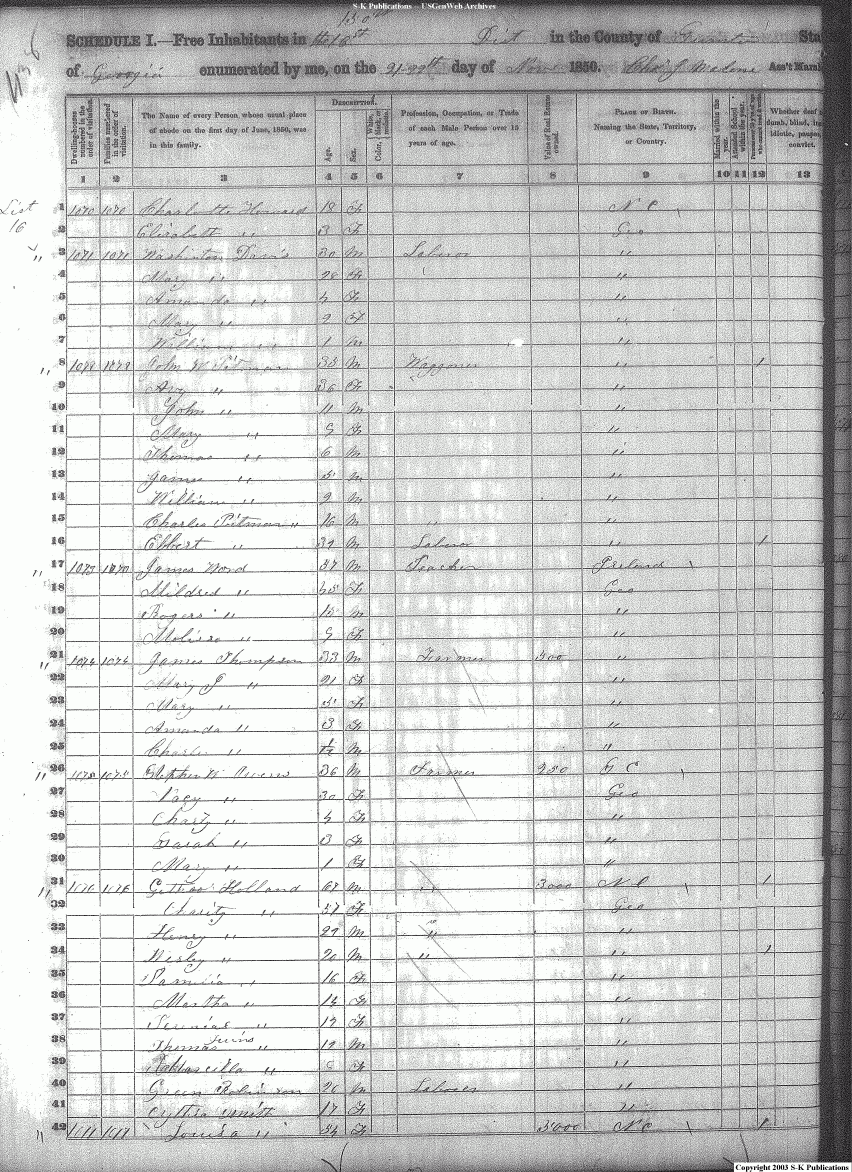 S-K Publications -- USGenWeb Archives
SCHEDULE I.—Free Inhabitants in the 18th Dist in the County of Sta
of Georgia enumerated by me, on the day of Nov 1850. Chas J Malone Ass't Marsl
Dwelling-houses numbered in the order of visitation.
Families numbered in the order of visitation.
The Name of every Person, whose usual place of abode on the first day of June, 1850, was in this family.
DESCRIPTION.
Age.
Sex.
Color,
Profession, Occupation, or Trade of each Male Person over 15 years of age.
Value of Real Estate owned.
PLACE OF BIRTH. Naming the State, Territory, or Country.
Married within the year.
Attended School within the year.
Whether deaf dumb, blind, idiotic, pauper, convict.
1 2 3 4 5 6 7 8 9 10 11 12 13
List 16
1 1070 1070 Charlotte Howard 18 F N C
2 Elizabeth " 3 F Geo
3 1071 1071 Washinton Davis 30 M Laborer "
4 Mary " 28 F "
5 Amanda " 4 F "
6 Mary " 2 F "
7 William " 1 M "
8 1072 1072 John W Pitman 35 M Waggoner " 1
9 Avy " 36 F "
10 John " 11 M "
11 Mary " 9 F "
12 Thomas " 6 M "
13 James " 5 M "
14 William " 2 M "
15 Charles Pitman " 16 M " "
16 Elbert " M Laborer " 1
17 1073 1073 James Word 37 M Teacher Ireland
18 Mildred " 45 F Geo
19 Rogers " 15 M "
20 Molissa " 9 F "
21 1074 1074 James Thompson 33 M Farmer 500 "
22 Mary J " 21 F "
23 Mary " 5 F "
24 Amanda " 3 F "
25 Charles " M "
26 1075 1075 Stephen W Owens 36 M Farmer 250 S C
27 Lacy " 30 F Geo
28 Charity " 4 F "
29 Sarah " 3 F "
30 Mary " 1 F "
31 1076 1076 Holland 68 M " 3000 N C 1
32 Charity " 57 F Geo
33 Henry " 22 M " "
34 Wesley " 20 M " " 1
35 Pamelia " 16 F "
36 Martha " 14 F "
37 " 12 F "
38 Thomas Twins " 12 M "
39 " F "
40 Green Robinson 26 M Laborer "
41 Smith 17 F "
42 1077 1077 Louisa " 54 F 5000 N C 1
Copyright 2003 S-K Publications